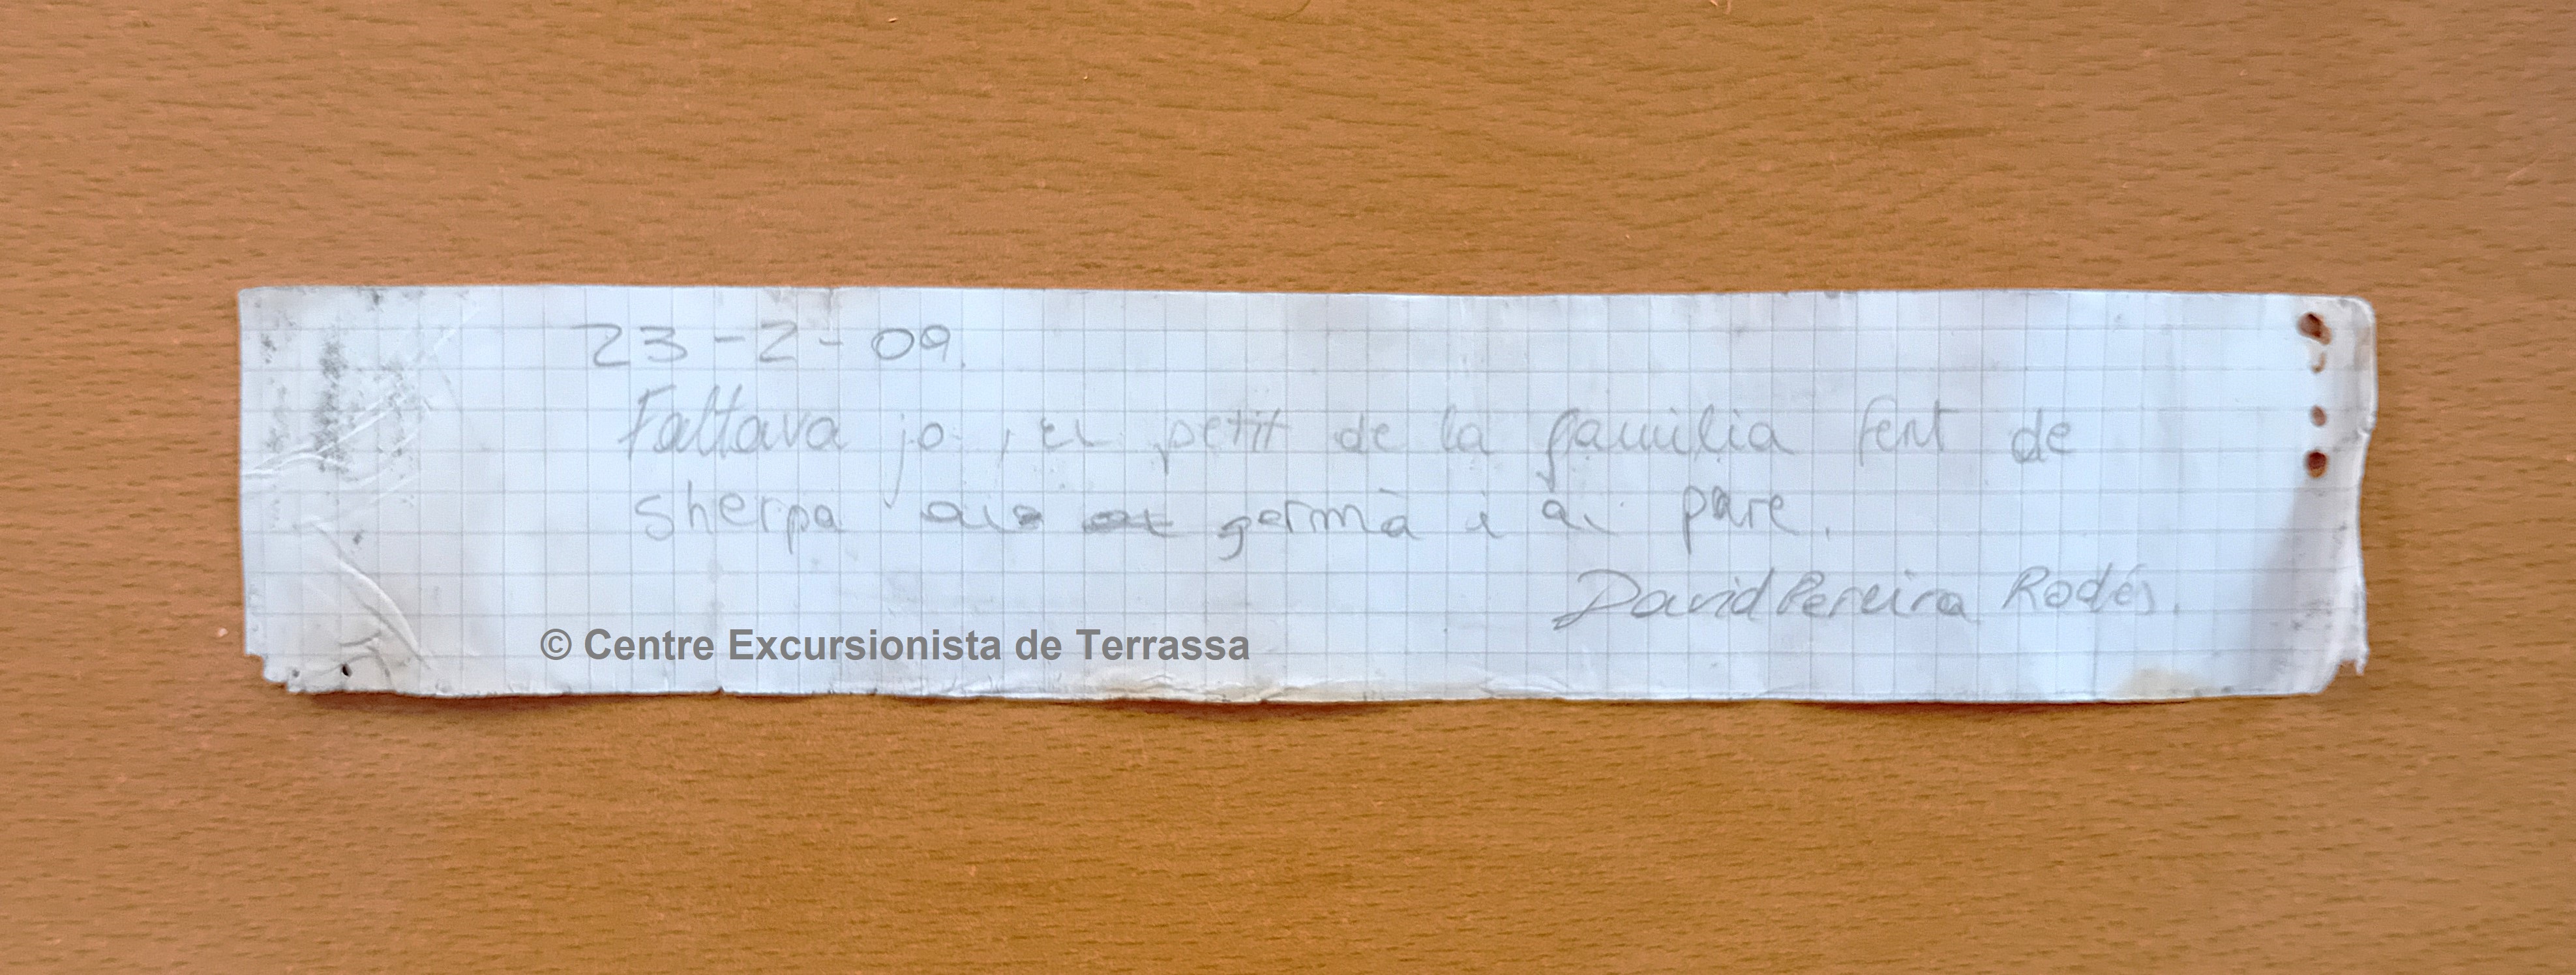 23-2-09.
Faltava jo, el petit de la familia fent de
sherpa al germà i al pare.
David Pereira Rodés.
© Centre Excursionista de Terrassa